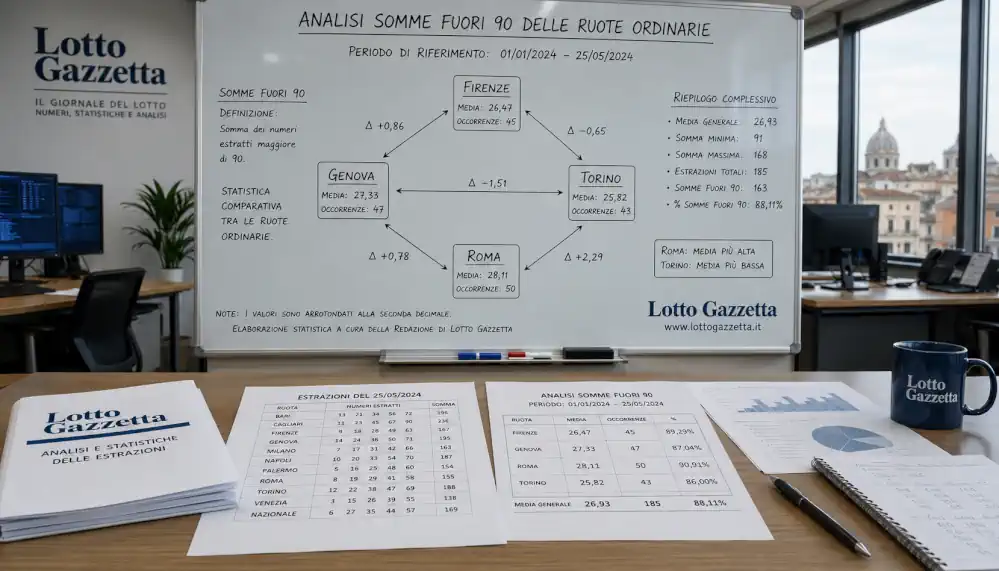 Lotto
Gazzetta
IL GIORNALE DEL LOTTO
NUMERI, STATISTICHE E ANALISI
ANALISI SOMME FUORI 90 DELLE RUOTE ORDINARIE
PERIODO DI RIFERIMENTO: 01/01/2024 – 25/05/2024
SOMME FUORI 90
DEFINIZIONE:
Somma dei numeri
estratti maggiore
di 90.
STATISTICA
COMPARATIVA
TRA LE RUOTE
ORDINARIE.
FIRENZE
MEDIA: 26,47
OCCORRENZE: 45
Δ +0,86
Δ –0,65
GENOVA
MEDIA: 27,33
OCCORRENZE: 47
Δ –1,51
TORINO
MEDIA: 25,82
OCCORRENZE: 43
Δ +0,78
Δ +2,29
ROMA
MEDIA: 28,11
OCCORRENZE: 50
RIEPILOGO COMPLESSIVO
• MEDIA GENERALE: 26,93
• SOMMA MINIMA: 91
• SOMMA MASSIMA: 168
• ESTRAZIONI TOTALI: 185
• SOMME FUORI 90: 163
• % SOMME FUORI 90: 88,11%
ROMA: MEDIA PIÙ ALTA
TORINO: MEDIA PIÙ BASSA
NOTE: I VALORI SONO ARROTONDATI ALLA SECONDA DECIMALE.
ELABORAZIONE STATISTICA A CURA DELLA REDAZIONE DI LOTTO GAZZETTA
Lotto Gazzetta
www.lottogazzetta.it
Lotto
Gazzetta
ANALISI E STATISTICHE
DELLE ESTRAZIONI
ESTRAZIONI DEL 25/05/2024
RUOTA NUMERI ESTRATTI SOMMA
BARI 13 21 34 56 72 196
CAGLIARI 11 23 45 67 90 236
FIRENZE 9 18 28 49 63 167
GENOVA 14 24 36 50 71 195
MILANO 7 17 31 42 66 163
NAPOLI 10 20 33 54 70 187
PALERMO 5 16 25 48 60 154
ROMA 8 19 29 41 58 155
TORINO 12 22 38 47 69 188
VENEZIA 3 15 26 39 55 138
NAZIONALE 6 27 35 44 57 169
ANALISI SOMME FUORI 90
PERIODO: 01/01/2024 – 25/05/2024
RUOTA MEDIA OCCORRENZE %
FIRENZE 26,47 45 89,29%
GENOVA 27,33 47 87,04%
ROMA 28,11 50 90,91%
TORINO 25,82 43 86,00%
MEDIA GENERALE 26,93 185 88,11%
Lotto
Gazzetta